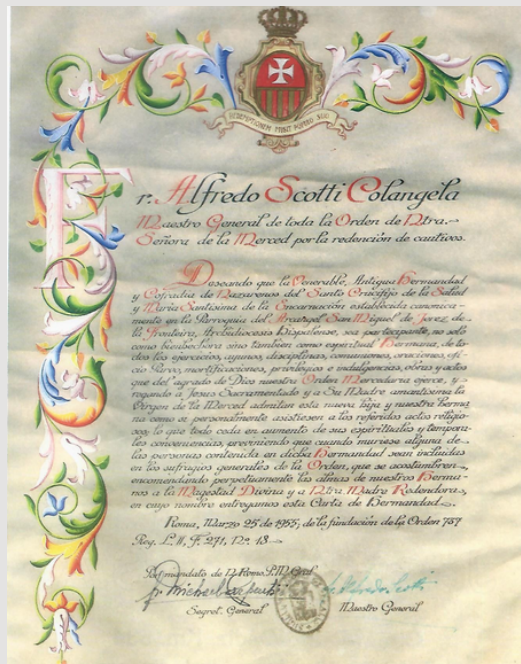 REDEMPTIONEM MISIT POPULO SUO
Fr. Alfredo Scotti Colangela
Maestro General de toda la Orden de Ntra.
Señora de la Merced por la redención de cautivos.
Deseando que la Venerable, Antigua Hermandad
y Cofradía de Nazarenos del Santo Crucifijo de la Salud
y María Santísima de la Encarnación establecida canonica-
mente en la Parroquia del Arcángel San Miguel de Jerez de
la Frontera, Archidiócesis Hispalense, sea participante, no solo
como bienhechora sino también como espiritual Hermana, de to-
dos los ejercicios, ayunos, disciplinas, comuniones, oraciones, ofi-
cio Parvo, mortificaciones, privilegios e indulgencias, obras y actos
que del agrado de Dios nuestra Orden Mercedaria ejerce, y
rogando a Jesús Sacramentado y a Su Madre amantísima la
Virgen de la Merced admitan esta nueva hija y nuestra herma
na como si personalmente asistiesen a los referidos actos religio-
sos; lo que todo ceda en aumento de sus espirituales y tempora-
les conveniencias, previniendo que cuando muriese alguna de
las personas contenida en dicha Hermandad sean incluidas
en los sufragios generales de la Orden, que se acostumbren,
encomendando perpetuamente las almas de nuestros Herma-
nos a la Magestad Divina y a Ntra Madre Redentora,
en cuyo nombre entregamos esta Carta de Hermandad.
Roma, Marzo 25 de 1955, de la fundación de la Orden 737
Reg. L. II, F. 271, No. 13
Por mandato de N. Rvmo. P. M. Gral.
Secret. General Maestro General